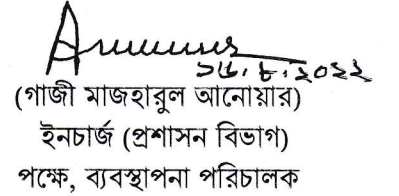 ২৮.৮.২০২২
(গাজী মাজহারুল আনোয়ার)
ইনচার্জ (প্রশাসন বিভাগ)
পক্ষে, ব্যবস্থাপনা পরিচালক